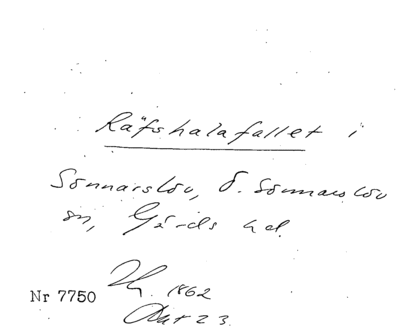 Räfshalafallet i
Sönnarslöv, Ö. Sönnarslöv
sn, Gärds hd.
1862
Nr 7750
23